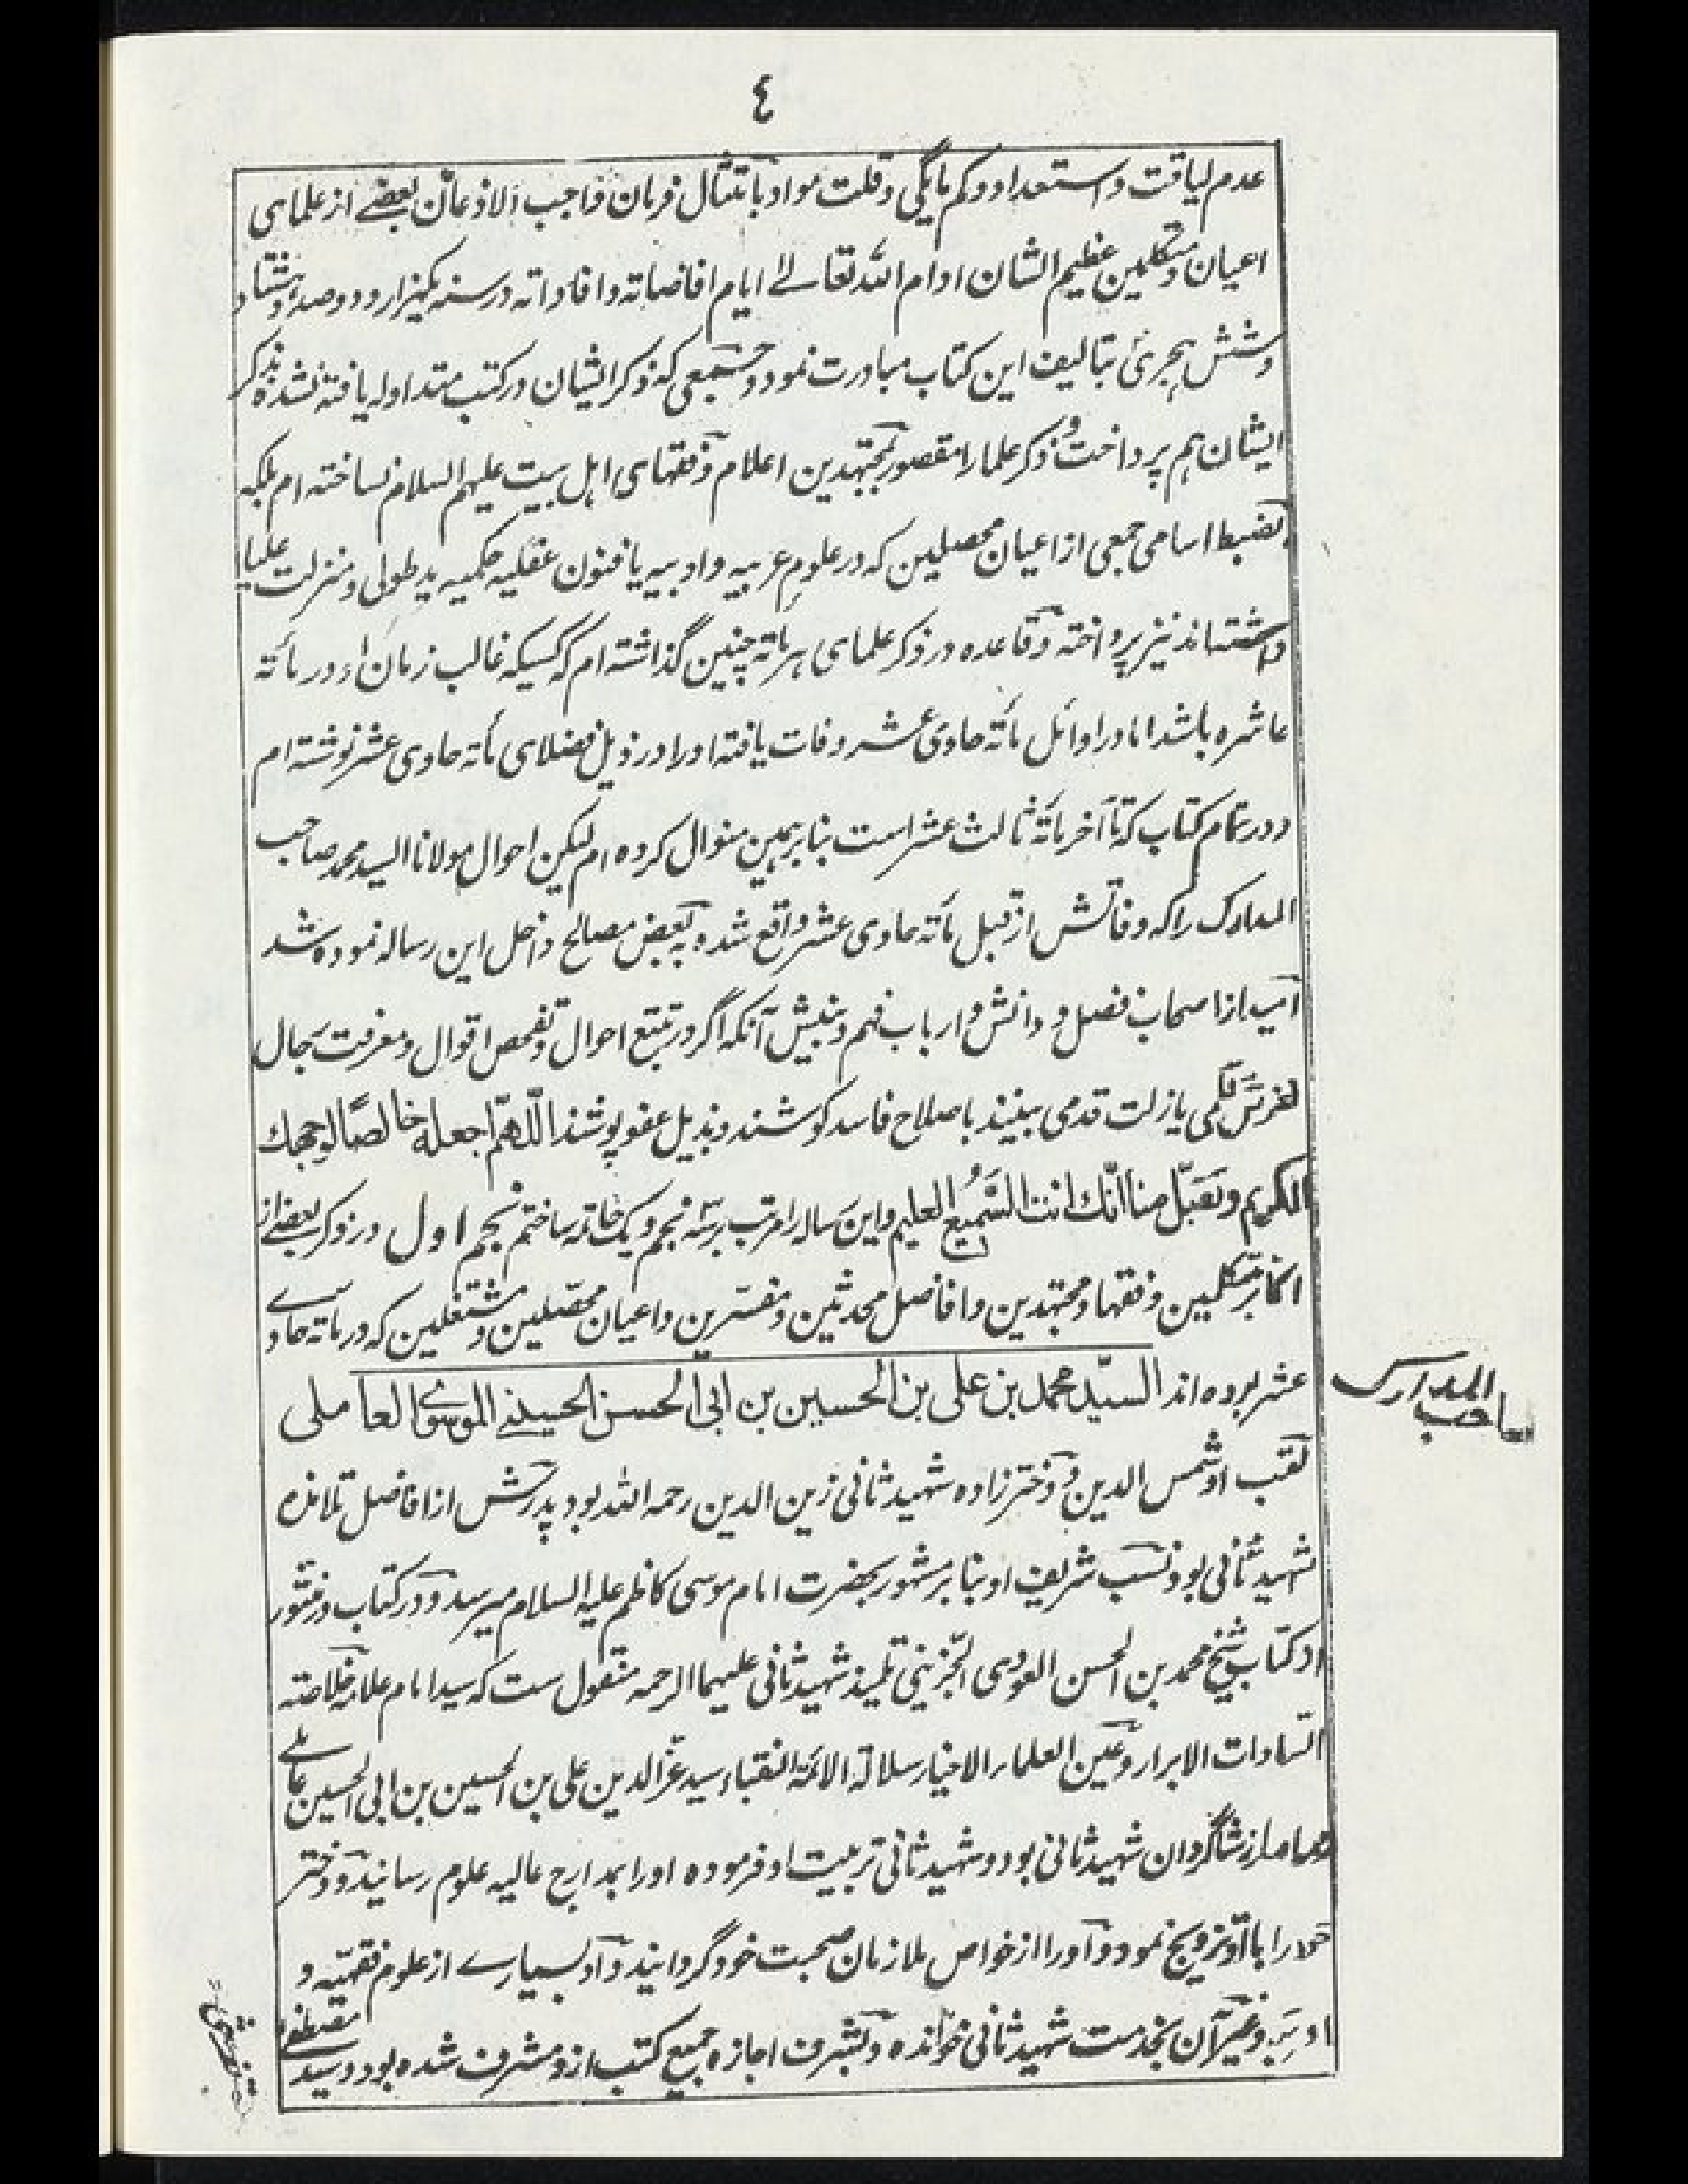 ٤
عدم لیاقت و استعداد و کم مایگی و قلت مواد بامتثال فرمان واجب الاذعان بعضے از علمای
اعیان و متکلمین عظیم الشان ادام الله تعالے ایام افاضاته و افاداته در سنه یکهزار و دو صد و هشتاد
و شش هجری بتالیف این کتاب مبادرت نمود و جمعی که ذکر ایشان در کتب متداوله یافته نشده بذکر
ایشان هم پرداخت و ذکر علما را مقصور بمجتهدین اعلام و فقهای اهل بیت علیهم السلام نساخته ام بلکه
بضبط اسامی جمعی از اعیان محصلین که در علوم عربیه و ادبیه یا فنون عقلیه حکمیه ید طولی و منزلت علیا
داشته اند نیز پرداخته و قاعده در ذکر علمای هر مائة چنین گذاشته ام که کسیکه غالب زمان او در مائة
عاشره باشد اما در اوائل مائة حاوی عشر وفات یافته او را در ذیل فضلای مائة حاوی عشر نوشته ام
و در تمام کتاب که تا آخر مائة ثالث عشر است بنا بر همین منوال کرده ام لیکن احوال مولانا السید محمد صاحب
المدارک را که وفاتش از قبل مائة حاوی عشر واقع شده به بعض مصالح داخل این رساله نموده شد
امید از اصحاب فضل و دانش و ارباب فهم و بینش آنکه اگر در تتبع احوال و تفحص اقوال و معرفت رجال
لغزش قلمی یا زلت قدمی بینند باصلاح فاسد کوشند و بذیل عفو پوشند اللّهمّ اجعله خالصًا لوجهك
الکریم و تقبّل منا انّك انت السَّمیعُ العلیم و این رساله را مرتب بر سه نجم و یک خاتمه ساختم نجم اول در ذکر بعضے از
اکابر متکلمین و فقها و مجتهدین و افاضل محدثین و مفسرین و اعیان محصّلین و مشتغلین که در مائة حادے
عشر بوده اند السیّد محمد بن علی بن الحسین بن ابی الحسن الحسینے الموسوے العاملی
صاحب المدارس
لقب او شمس الدین و دختر زاده شهید ثانی زین الدین رحمه الله بود پدرش از افاضل تلامذه
شهید ثانی بود و نسب شریف او بنا بر مشهور بحضرت امام موسی کاظم علیه السلام میرسد و در کتاب در منثور
از کتاب شیخ محمد بن الحسن العودی الجزینی تلمیذ شهید ثانی علیهما الرحمه منقول ست که سید امام علامه خلاصته
السّادات الابرار و عین العلماء الاخیار سلالة الائمة النقباء سید عزّ الدین علی بن الحسین بن ابی الحسین عاملے
از شاگردان شهید ثانی بود و شهید ثانی تربیت او فرموده او را بمدارج عالیه علوم رسانید و دختر
خود را با او تزویج نمود و او را از خواص ملازمان صحبت خود گردانید و او بسیارے از علوم فقهیّه و
ادبیه و غیر آن بخدمت شهید ثانی خوانده و بشرف اجازه جمیع کتب از و مشرف شده بود و سید مصطفے